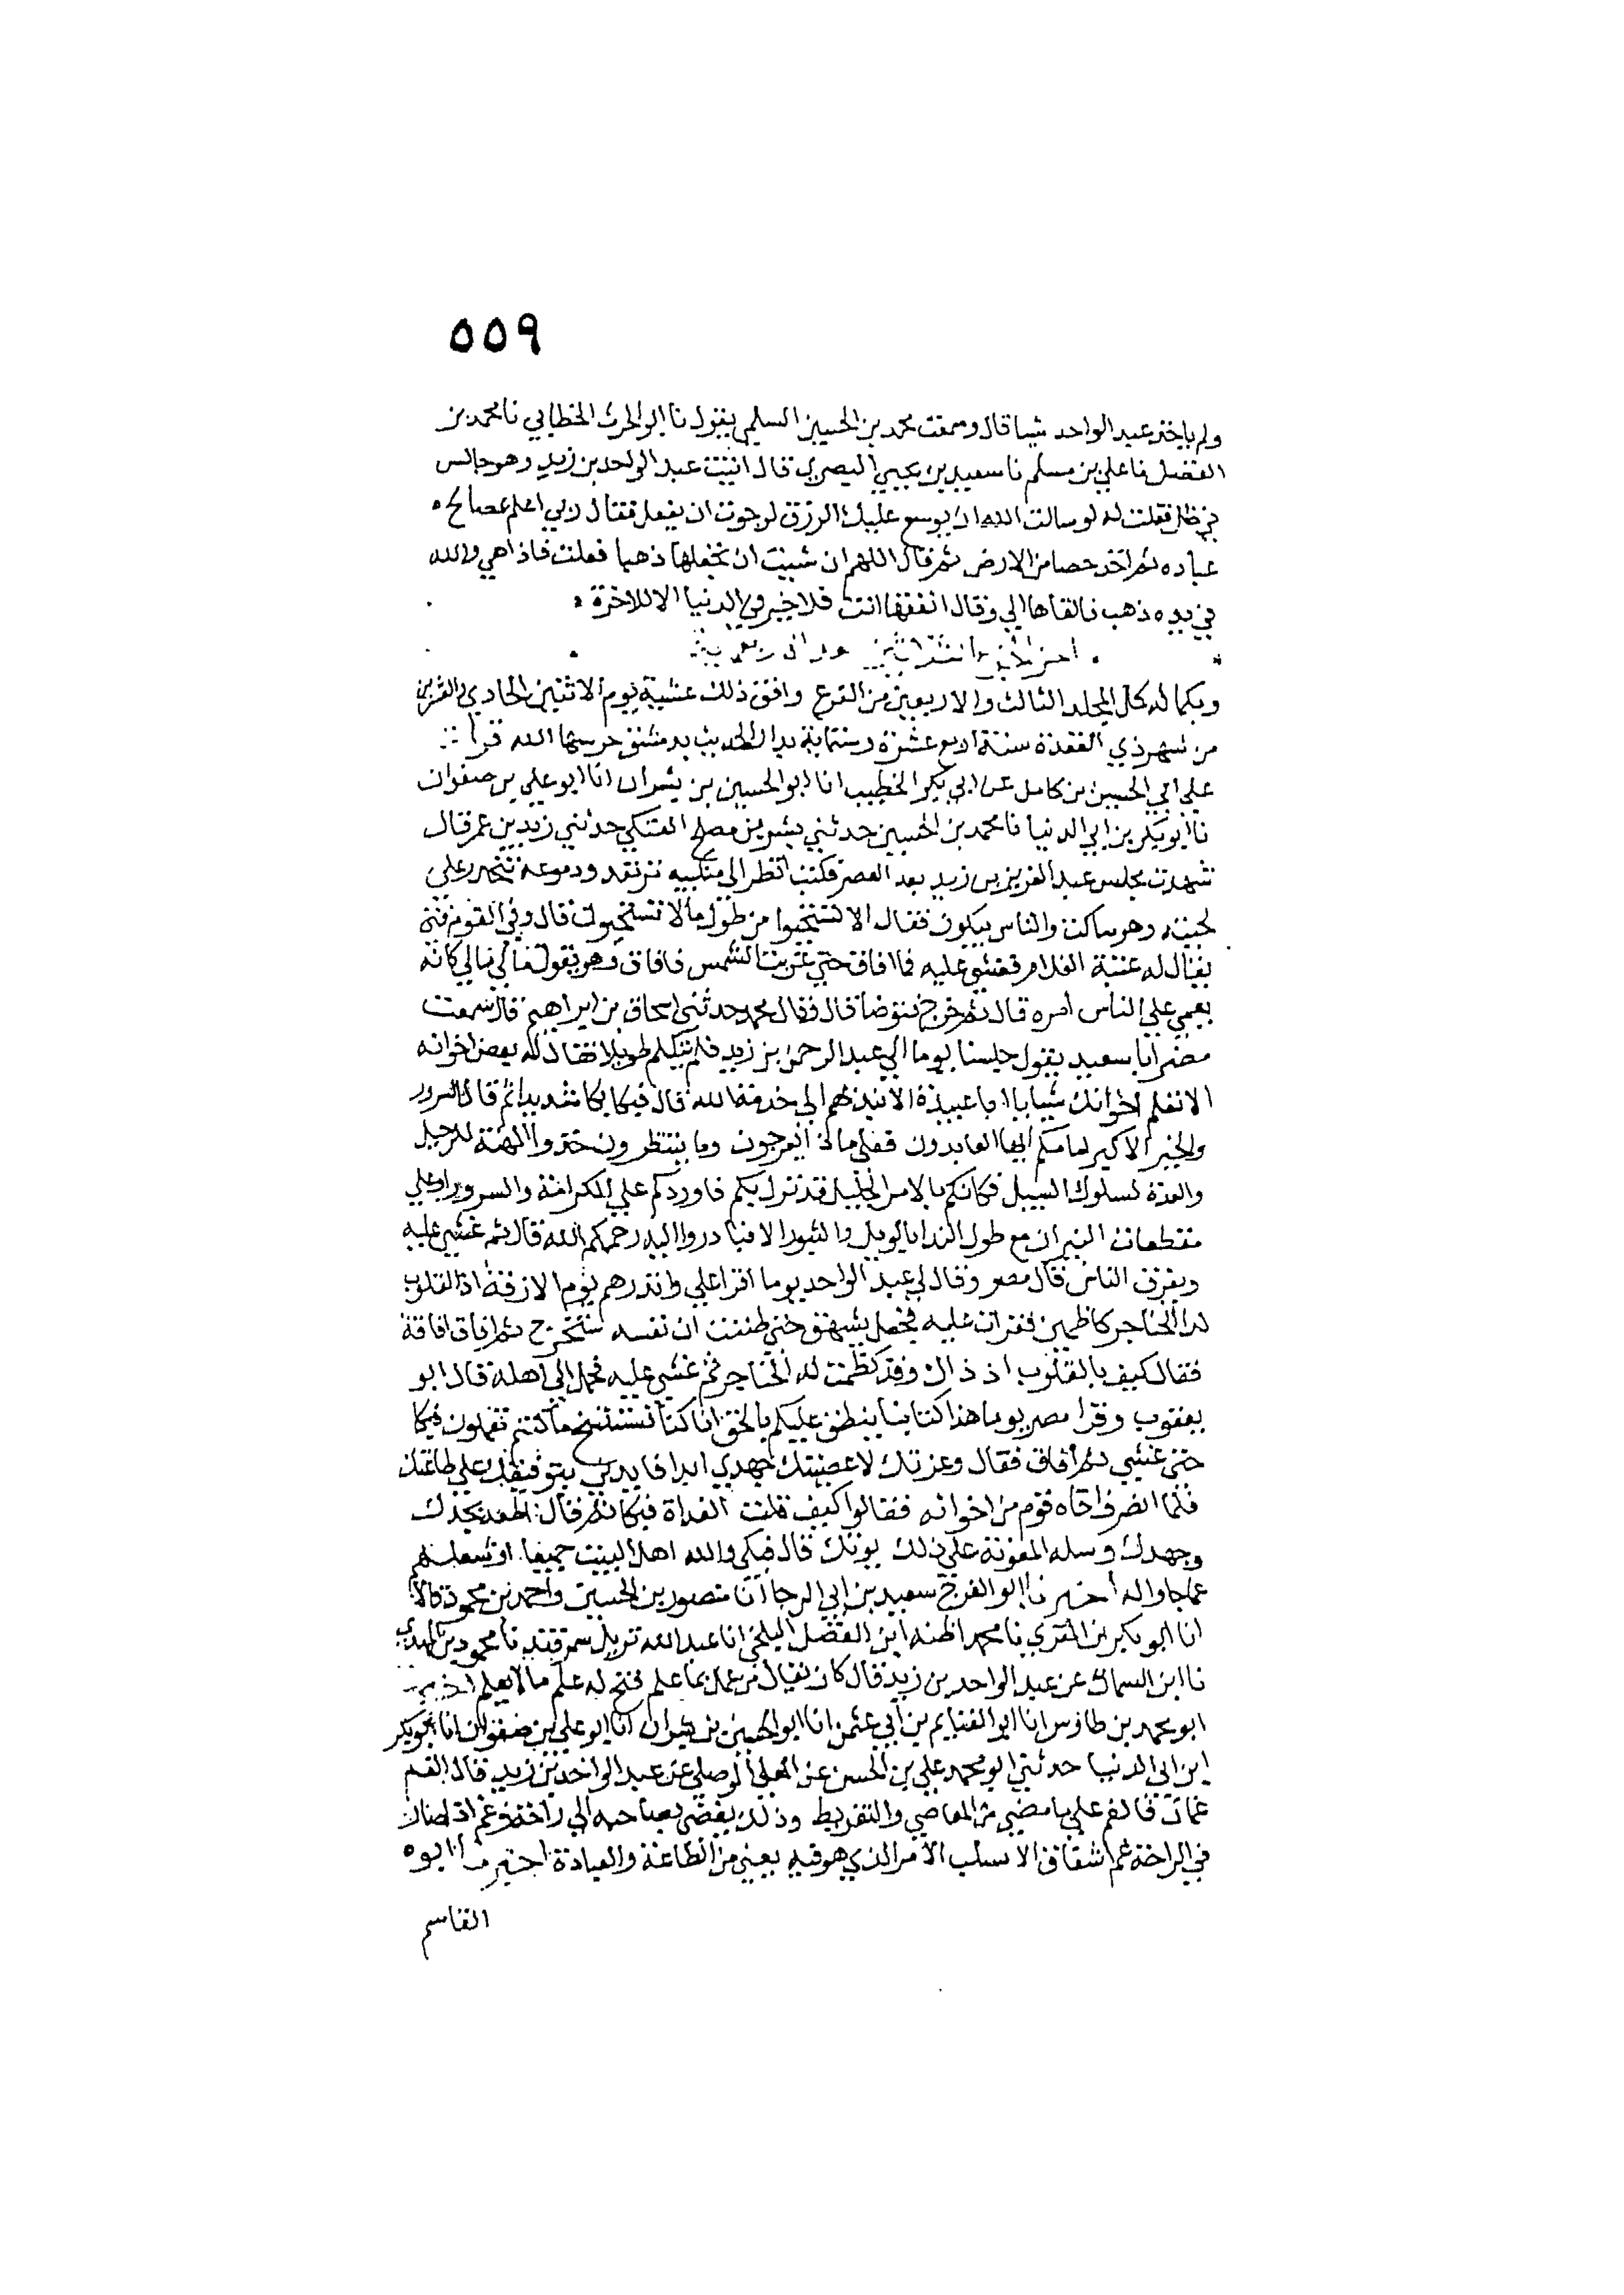 ٥٥٩
ولم ياخذ عبد الواحد شيا قال وسمعت محمد بن الحسين السلمي يقول نا ابو الحرث الخطابي نا محمد بن
الفضل نا علي بن مسلم نا سعيد بن يحيي البصري قال اتيت عبد الواحد بن زيد وهو جالس
في ظل فقلت له لو سالت الله ان يوسع عليك الرزق لرجوت ان يفعل فقال ربي اعلم بمصالح
عباده ثم اخذ حصا من الارض ثم قال اللهم ان شيت ان تجعلها ذهبا فعلت فاذا هي والله
في يده ذهب فالقاها الي وقال انفقها انت فلا خير في الدنيا الا للاخرة
وبكماله كمل المجلد الثالث والاربعين من الفرع وافق ذلك عشية يوم الاثنين الحادي والعشرين
من شهر ذي القعدة سنة اربع عشرة وستماية بدار الحديث بدمشق حرسها الله قرا
علي ابي الحسين بن كامل عن ابي بكر الخطيب انا ابو الحسين بن بشران انا ابو علي بن صفوان
نا ابو بكر بن ابي الدنيا نا محمد بن الحسين حدثني بشر بن مصلح العتكي حدثني زيد بن عمر قال
شهدت مجلس عبد العزيز بن زيد بعد العصر فكنت انظر الي منكبيه ترتعد ودموعه تتحدر علي
لحيته وهو ساكت والناس يبكون فقال الا تستحيوا من طول ما لا تستحيون قال وفي القوم فتي
يقال له عتبة الغلام فغشي عليه فما افاق حتي غربت الشمس فافاق وهو يقول مالي مالي كانه
يعمي علي الناس امره قال ثم خرج فتوضا قال فقال محمد حدثني اسحاق بن ابراهيم قال سمعت
مضر ابا سعيد يقول جلسنا يوما الي عبد الرحمن بن زيد فلم يتكلم طويلا فقال له بعض اخوانه
الا تعلم اخوانك شيا يابا عبيدة الا تبذهم الي خدمة الله قال فبكا بكا شديدا ثم قال السرور
والخير الاكبر امامكم ايها العابدون فعلي ماذا تعرجون وما تنتظرون خذوا الاهبة للرحيل
والعدة لسلوك السبيل فكانكم بالامر الجليل قد نزل بكم فاوردكم علي الكرامة والسرور او علي
مقطعات النيران مع طول الندا بالويل والثبور الا فبادروا اليه رحمكم الله قال ثم غشي عليه
وتفرق الناس قال مضر وقال لي عبد الواحد يوما اقرا علي وانذرهم يوم الازفة اذ القلوب
لدا الحناجر كاظمين فقرات عليه فجعل يشهق حتي ظننت ان نفسه ستخرج ثم افاق افاقة
فقال كيف بالقلوب اذ ذاك وقد كظمت لدا الحناجر ثم غشي عليه فحمل الي اهله قال ابو
يعقوب وقرا مضر يوما هذا كتابنا ينطق عليكم بالحق انا كنا نستنسخ ما كنتم تعملون فبكا
حتي غشي ثم افاق فقال وعزتك لا عصيتك جهدي ابدا فايدني بتوفيقك علي طاعتك
فلما انصرف اتاه قوم من اخوانه فقالوا كيف قلت الغداة فبكا ثم قال اطعه بجدك
وجهدك وسله المعونة علي ذلك يوتك قال فبكي والله اهل البيت جميعا او شغلهم
عما جاوا له اخبرنا ابو الفرج سعيد بن ابي الرجا انا منصور بن الحسين واحمد بن محمود قالا
انا ابو بكر بن المقري نا محمد اظنه ابن الفضل البلخي انا عبد الله نزيل سمرقند نا محمود بن المهدي
نا ابن السماك عن عبد الواحد بن زيد قال كان يقال من عمل بما علم فتح له علم ما لا يعلم اخبرنا
ابو محمد بن طاوس انا ابو الغنايم بن ابي عثمن انا ابو الحسين بن بشران انا ابو علي بن صفوان انا ابو بكر
ابن ابي الدنيا حدثني ابو محمد علي بن الحسن عن العلا الموصلي عن عبد الواحد بن زيد قال الغم
غمان فالغم علي ما مضي من المعاصي والتفريط وذلك يفضي بصاحبه الي راحة وغم اذا صار
في الراحة غم اشفاق الا يسلب الامر الذي هو فيه يعني من الطاعة والعبادة اخبرنا ابو
القاسم